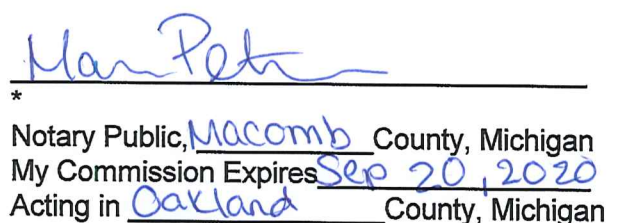 *
Notary Public, Macomb County, Michigan
My Commission Expires Sep 20, 2020
Acting in Oakland County, Michigan